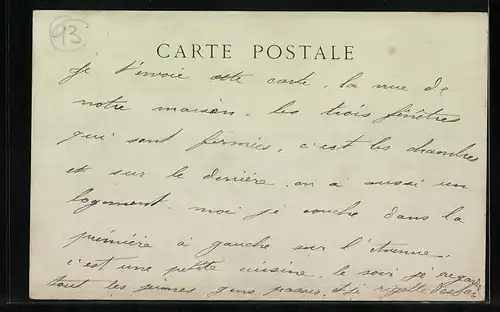 93
CARTE POSTALE
je t'envoie cette carte, la vue de
notre maison. les trois fenêtres
qui sont fermées, c'est les chambres
et sur le derrière, on a aussi un
logement. moi je couche dans la
première à gauche sur l'avenue.
c'est une petite cuisine, le soir je regarde
tout les jeunes gens passer, et je rigolle